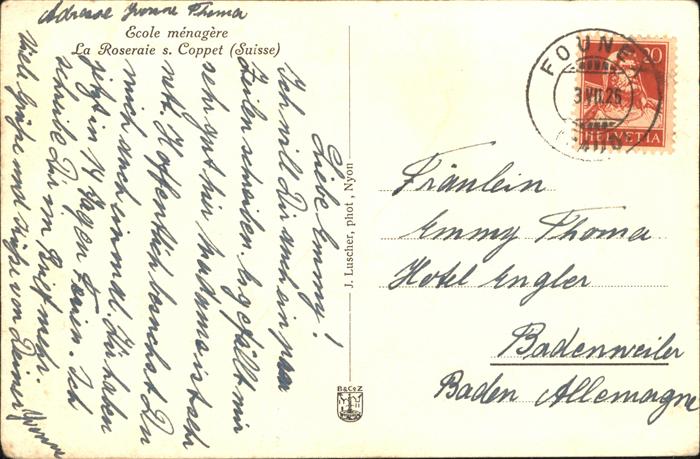 Adresse Yvonne Thoma
Ecole ménagère
La Roseraie s. Coppet (Suisse)
Liebe Emmy!
Ich will Dir auch ein paar
Zeilen schreiben. Es gefällt mir
sehr gut hir. Madame ist sehr
nett. Hoffentlich besuchst Du
mich auch einmal. Wir haben
jetzt in 14 Tagen Ferien. Ich
schreibe Dir im Brief mehr.
Viele Grüße und Küße von Deiner Yvonne
J. Luscher, phot, Nyon
B&CoZ
FOUNEX
3 VII.25
20
HELVETIA
Fräulein
Emmy Thoma
Hotel Engler
Badenweiler
Baden Allemagne